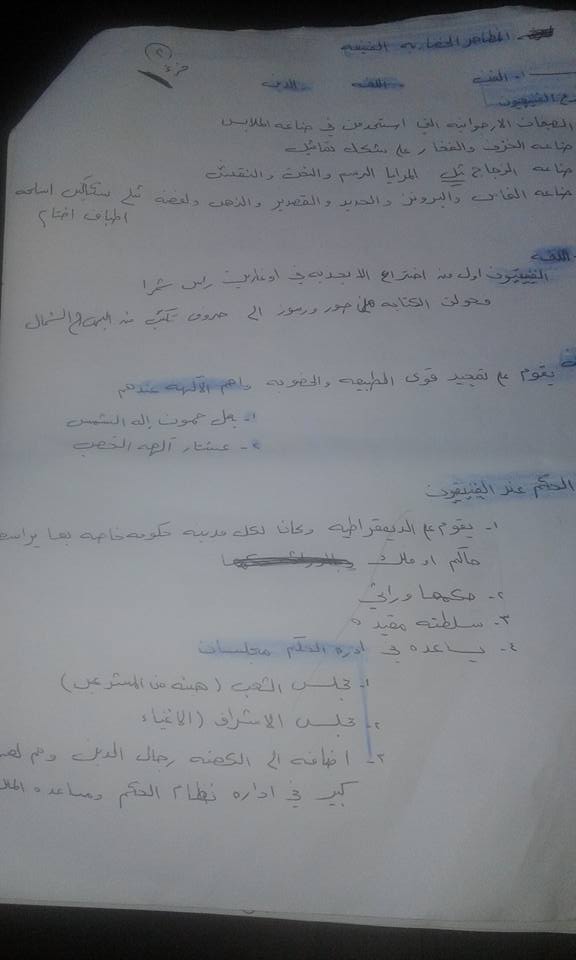 المظاهر الحضاريه الفينيقيه
جزء ٢
١- الفن اللغه الدين
الفينيقيون
الصبغات الارجوانيه التي استخدمت في صناعه الملابس
صناعه الخزف والفخار على شكل تماثيل
صناعه الزجاج مثل المرايا الرسم والنحت والنقش
صناعه النحاس والبرونز والحديد والقصدير والذهب ولفضه مثل سكاكين اسلحه
اطباق اختام
اللغه
الفينيقيون اول من اختراع الابجديه في اوغاريت راس شمرا
فحولت الكتابه من صور ورموز الى حروف تكتب من اليمين الشمال
يقوم على تمجيد قوى الطبيعه والخصوبه واهم الآلهه عندهم
١- بعل حمون إله الشمس
٢- عشتار آلهه الخصب
الحكم عند الفينيقيون
١- يقوم على الديمقراطيه وكان لكل مدينه حكومه خاصه بها
حاكم او ملك
٢- حكمها وراثي
٣- سلطته مقيده
٤- يساعده في اداره الحكم مجلسان
١- مجلس الشعب (هيئه من المشرعين)
٢- مجلس الاشراف (الاغنياء
٣- اضافه الى الكهنه رجال الدين وهم
كبير في اداره نظام الحكم ومساعده